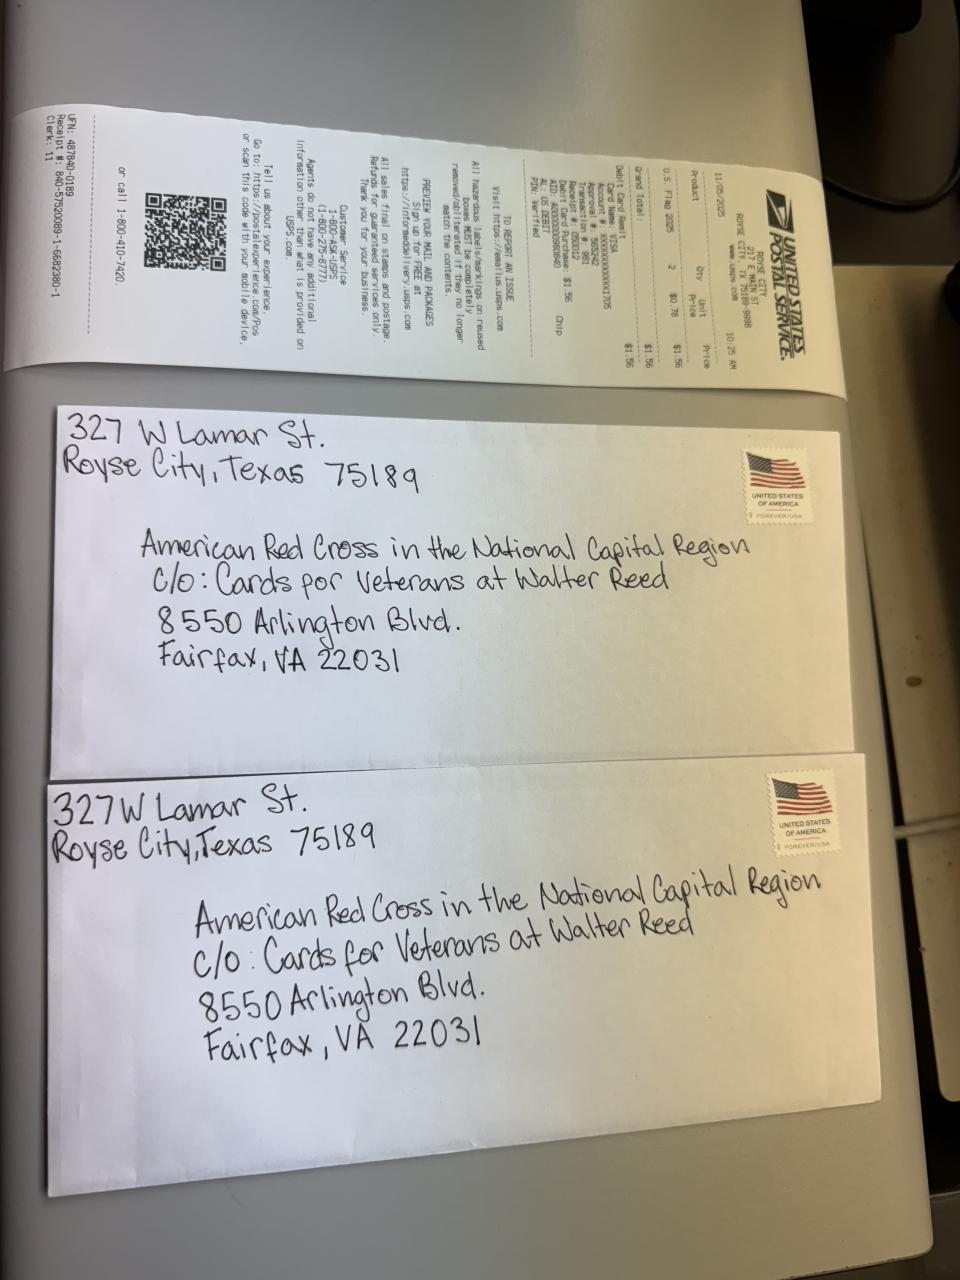 UNITED STATES
POSTAL SERVICE.
ROYSE CITY
217 E MAIN ST
ROYSE CITY, TX 75189-9998
www.usps.com
11/05/2025 10:25 AM
Product Qty Unit Price
Price
U.S. Flag 2025 2 $0.78 $1.56
Grand Total: $1.56
Debit Card Remit $1.56
Card Name: VISA
Account #: XXXXXXXXXXXX1705
Approval #: 565242
Transaction #: 981
Receipt #: 050012
Debit Card Purchase: $1.56
AID: A0000000980840 Chip
AL: US DEBIT
PIN: Verified
TO REPORT AN ISSUE
Visit https://emailus.usps.com
All hazardous labels/markings on reused
boxes MUST be completely
removed/obliterated if they no longer
match the contents.
PREVIEW YOUR MAIL AND PACKAGES
Sign up for FREE at
https://informeddelivery.usps.com
All sales final on stamps and postage.
Refunds for guaranteed services only.
Thank you for your business.
Customer Service
1-800-ASK-USPS
(1-800-275-8777)
Agents do not have any additional
information other than what is provided on
USPS.com.
Tell us about your experience
Go to: https://postalexperience.com/Pos
or scan this code with your mobile device,
or call 1-800-410-7420.
UFN: 487840-0189
Receipt #: 840-57520089-1-5682390-1
Clerk: 11
327 W Lamar St.
Royse City, Texas 75189
UNITED STATES
OF AMERICA
FOREVER/USA
American Red Cross in the National Capital Region
c/o: Cards for Veterans at Walter Reed
8550 Arlington Blvd.
Fairfax, VA 22031
327 W Lamar St.
Royse City, Texas 75189
UNITED STATES
OF AMERICA
FOREVER/USA
American Red Cross in the National Capital Region
c/o: Cards for Veterans at Walter Reed
8550 Arlington Blvd.
Fairfax, VA 22031